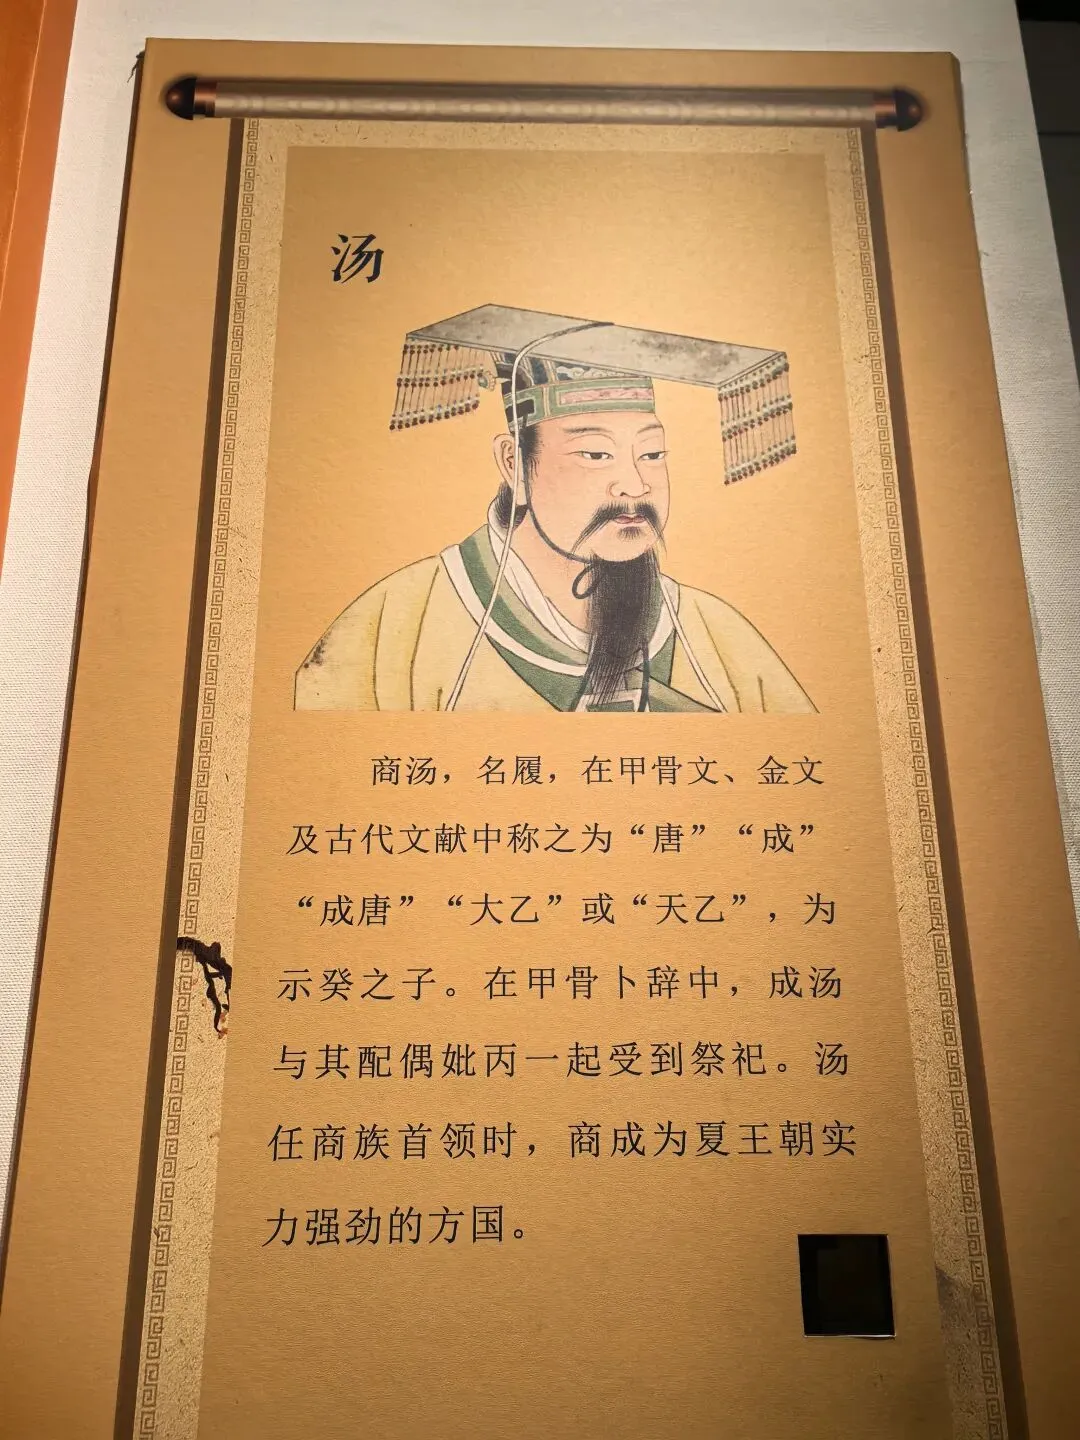 汤
商汤，名履，在甲骨文、金文
及古代文献中称之为“唐”“成”
“成唐”“大乙”或“天乙”，为
示癸之子。在甲骨卜辞中，成汤
与其配偶妣丙一起受到祭祀。汤
任商族首领时，商成为夏王朝实
力强劲的方国。